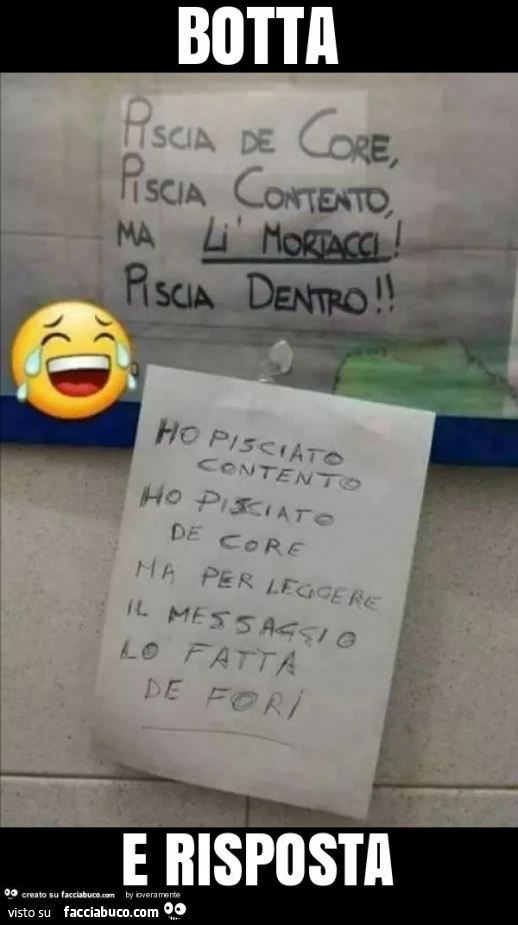 BOTTA
PISCIA DE CORE,
PISCIA CONTENTO,
MA LI' MORTACCI!
PISCIA DENTRO!!
HO PISCIATO
CONTENTO
HO PISCIATO
DE CORE
MA PER LEGGERE
IL MESSAGGIO
LO FATTA
DE FORI
E RISPOSTA
creato su facciabuco.com by ioveramente
visto su facciabuco.com